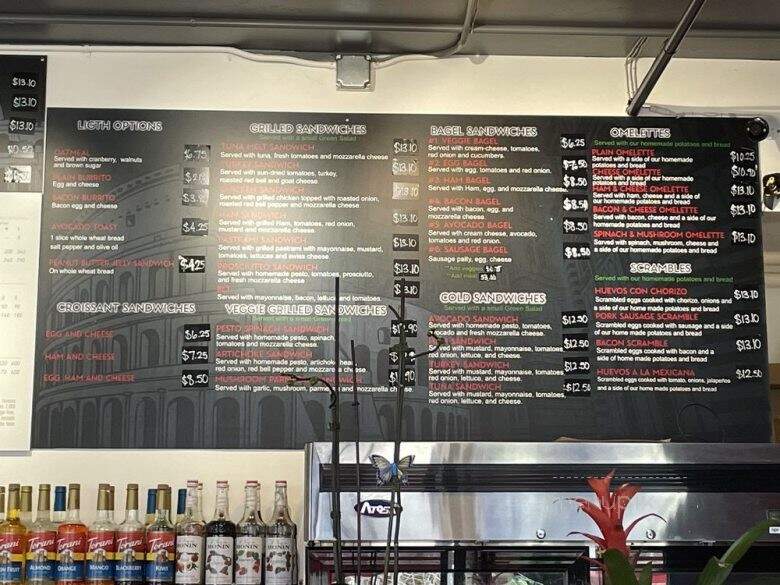 $13.10
$13.10
$13.10
LIGTH OPTIONS
OATMEAL
Served with cranberry, walnuts
and brown sugar
$6.75
PLAIN BURRITO
Egg and cheese
BACON BURRITO
Bacon egg and cheese
AVOCADO TOAST
1 slice whole wheat bread
salt pepper and olive oil
$4.25
PEANUT BUTTER JELLY SANDWICH
On whole wheat bread
$4.25
CROISSANT SANDWICHES
EGG AND CHEESE
$6.25
HAM AND CHEESE
$7.25
EGG HAM AND CHEESE
$8.50
GRILLED SANDWICHES
Served with a small Green Salad
TUNA MELT SANDWICH
Served with tuna, fresh tomatoes and mozzarella cheese
$13.10
TURKEY SANDWICH
Served with sun-dried tomatoes, turkey,
roasted red bell and goat cheese.
$13.10
SANDWICH
Served with grilled chicken topped with roasted onion,
roasted red bell pepper and mozzarella cheese
$13.10
HAM SANDWICH
Served with grilled Ham, tomatoes, red onion,
mustard, and mozzarella cheese.
$13.10
PASTRAMI SANDWICH
Served with grilled pastrami with mayonnaise, mustard,
tomatoes, lettuce and swiss cheese
$13.10
PROSCIUTTO SANDWICH
Served with homemade pesto, tomatoes, prosciutto,
and fresh mozzarella cheese.
$13.10
BLT
Served with mayonnaise, bacon, lettuce and tomatoes.
VEGGIE GRILLED SANDWICHES
Served with a small Green Salad
PESTO SPINACH SANDWICH
Served with homemade pesto, spinach,
tomatoes and mozzarella cheese.
ARTICHOKE SANDWICH
Served with homemade pesto, artichoke
red onion, red bell pepper and mozzarella cheese.
MUSHROOM SANDWICH
Served with garlic, mushroom, parmesan and mozzarella cheese
BAGEL SANDWICHES
#1. VEGGIE BAGEL
Served with cream-cheese, tomatoes,
red onion and cucumbers.
$6.25
#2. EGG BAGEL
Served with egg, tomatoes and red onion.
$7.50
#3. HAM BAGEL
Served with Ham, egg, and mozzarella cheese
$8.50
#4. BACON BAGEL
Served with bacon, egg, and
mozzarella cheese.
$8.50
#5. AVOCADO BAGEL
Served with cream cheese, avocado,
tomatoes and red onion.
$8.50
#6. SAUSAGE BAGEL
Sausage patty, egg, cheese
$8.50
COLD SANDWICHES
Served with a small Green Salad
AVOCADO SANDWICH
Served with homemade pesto, tomatoes,
avocado and fresh mozzarella cheese.
$12.50
SANDWICH
Served with mustard, mayonnaise, tomatoes
red onion, lettuce, and cheese.
$12.50
TURKEY SANDWICH
Served with mustard, mayonnaise, tomatoes,
red onion, lettuce, and cheese.
$12.50
TUNA SANDWICH
Served with mustard, mayonnaise, tomatoes,
red onion, lettuce, and cheese.
$12.50
OMELETTES
Served with our homemade potatoes and bread
PLAIN OMELETTE
Served with a side of our homemade
potatoes and bread
$10.25
CHEESE OMELETTE
Served with a side of our homemade
potatoes and bread
$10.90
HAM & CHEESE OMELETTE
Served with ham, cheese and a side
of our homemade potatoes and bread
$13.10
BACON & CHEESE OMELETTE
Served with bacon, cheese and a side of our
homemade potatoes and bread
$13.10
SPINACH & MUSHROOM OMELETTE
Served with spinach, mushroom, cheese and
a side of our homemade potatoes and bread.
$13.10
SCRAMBLES
Served with our homemade potatoes and bread
HUEVOS CON CHORIZO
Scrambled eggs cooked with chorizo, onions and
a side of our home made potatoes and bread
$13.10
PORK SAUSAGE SCRAMBLE
Scrambled eggs cooked with sausage and a side
of our home made potatoes and bread
$13.10
BACON SCRAMBLE
Scrambled eggs cooked with bacon and a
side of home made potatoes and bread
$13.10
HUEVOS A LA MEXICANA
Scrambled eggs cooked with tomato, onions, jalapeños
and a side of our home made potatoes and bread
$12.50
Atosa
Torani
ALMOND
Torani
ORANGE
Torani
MANGO
Torani
BLACKBERRY
Torani
KIWI
MONIN
MONIN
MONIN